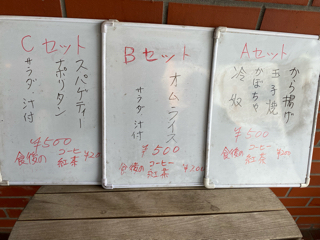 Aセット
から揚げ
玉子焼
かぼちゃ
冷奴
¥500
食後の
コーヒー
紅茶
¥200
Bセット
オムライス
サラダ、汁付
¥500
食後の
コーヒー
紅茶
¥200
Cセット
スパゲティー
ナポリタン
サラダ、汁付
¥500
食後の
コーヒー
紅茶
¥200